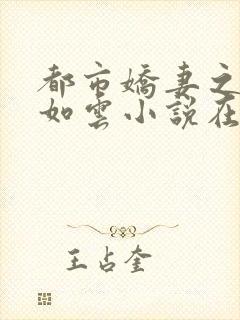 都市嬌妻之
如雲小說在
王占奎